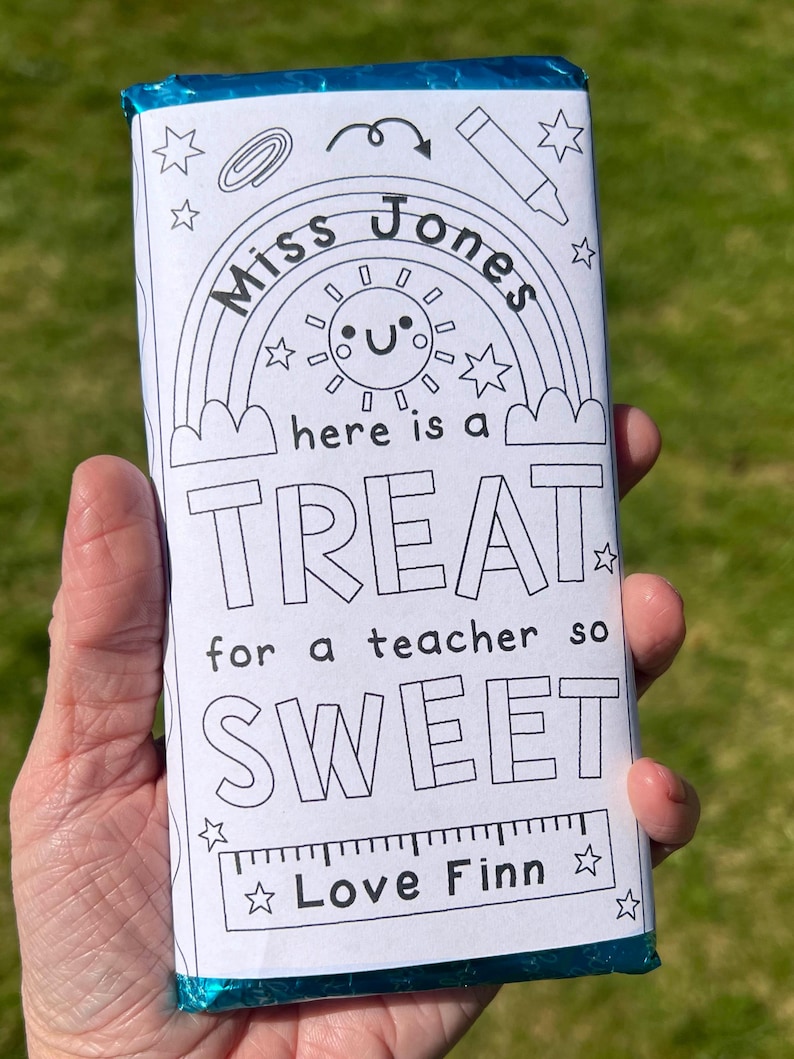 Miss Jones
here is a
TREAT
for a teacher so
SWEET
Love Finn